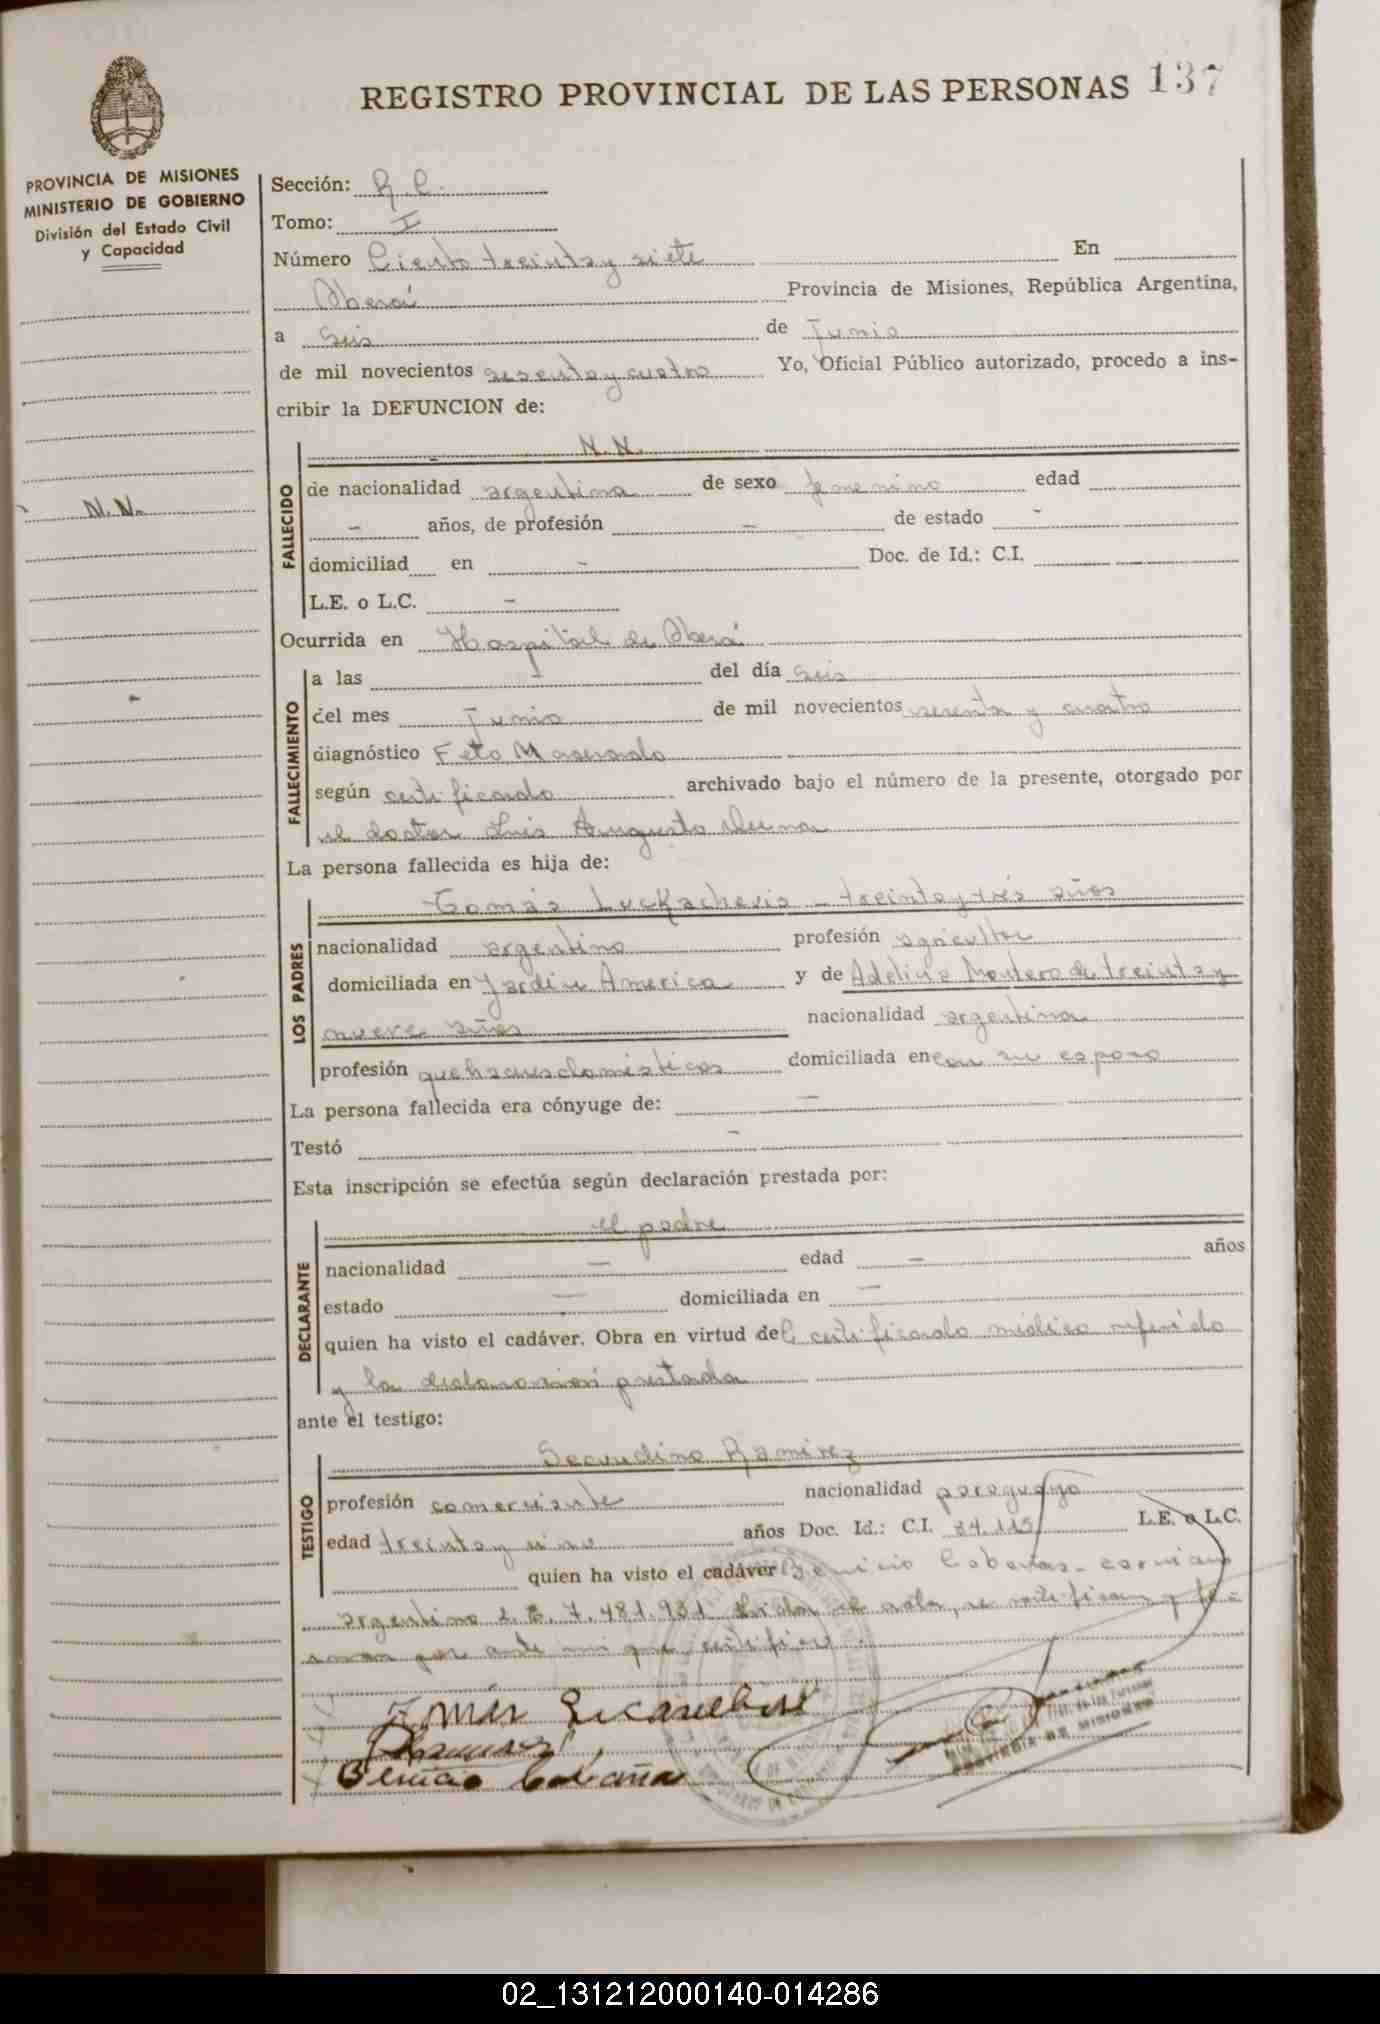 REGISTRO PROVINCIAL DE LAS PERSONAS 137
PROVINCIA DE MISIONES
MINISTERIO DE GOBIERNO
División del Estado Civil
y Capacidad
N.N.
Sección: R.C.
Tomo: I
Número Ciento treinta y siete En
Oberá Provincia de Misiones, República Argentina,
a Seis de Junio
de mil novecientos sesenta y cuatro Yo, Oficial Público autorizado, procedo a ins-
cribir la DEFUNCION de:
N.N.
FALLECIDO
de nacionalidad argentina de sexo femenino edad
- años, de profesión - de estado -
domiciliad en - Doc. de Id.: C.I.
L.E. o L.C. -
Ocurrida en Hospital de Oberá
FALLECIMIENTO
a las del día seis
del mes Junio de mil novecientos sesenta y cuatro
diagnóstico Feto Macerado
según certificado archivado bajo el número de la presente, otorgado por
el doctor Luis Augusto
La persona fallecida es hija de:
LOS PADRES
Tomás Luckachevis - treinta y trés años
nacionalidad argentino profesión agricultor
domiciliada en Jardin America y de Adelina Montero de treinta y
nueve años nacionalidad argentina
profesión quehaceres domésticos domiciliada en con su esposo
La persona fallecida era cónyuge de: -
Testó -
Esta inscripción se efectúa según declaración prestada por:
DECLARANTE
el padre
nacionalidad - edad - años
estado - domiciliada en -
quien ha visto el cadáver. Obra en virtud del certificado médico referido
y la declaración prestada
ante el testigo:
TESTIGO
Secundino Ramirez
profesión comerciante nacionalidad paraguayo
edad treinta y uno años Doc. Id.: C.I. 34.115 L.E. o L.C.
quien ha visto el cadáver Benicio Cabañas -
argentino L.E. 7.481.931 Leida el acta, se ratifican y fir-
man por ante mi que certifico.
Tomás
Benicio Cabaña
PROVINCIA DE MISIONES
02_131212000140-014286